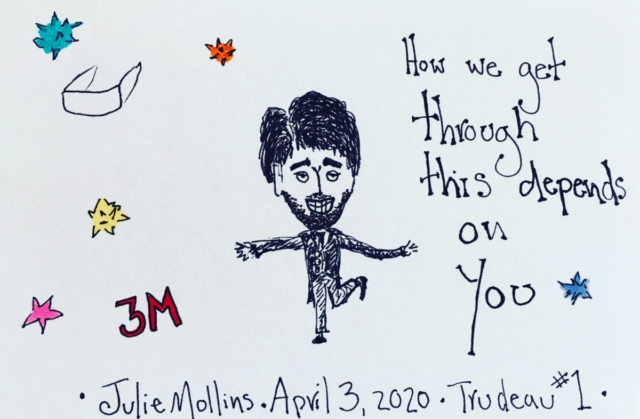 How we get
through
this depends
on
You
3M
· Julie Mollins · April 3, 2020 · Trudeau #1 ·